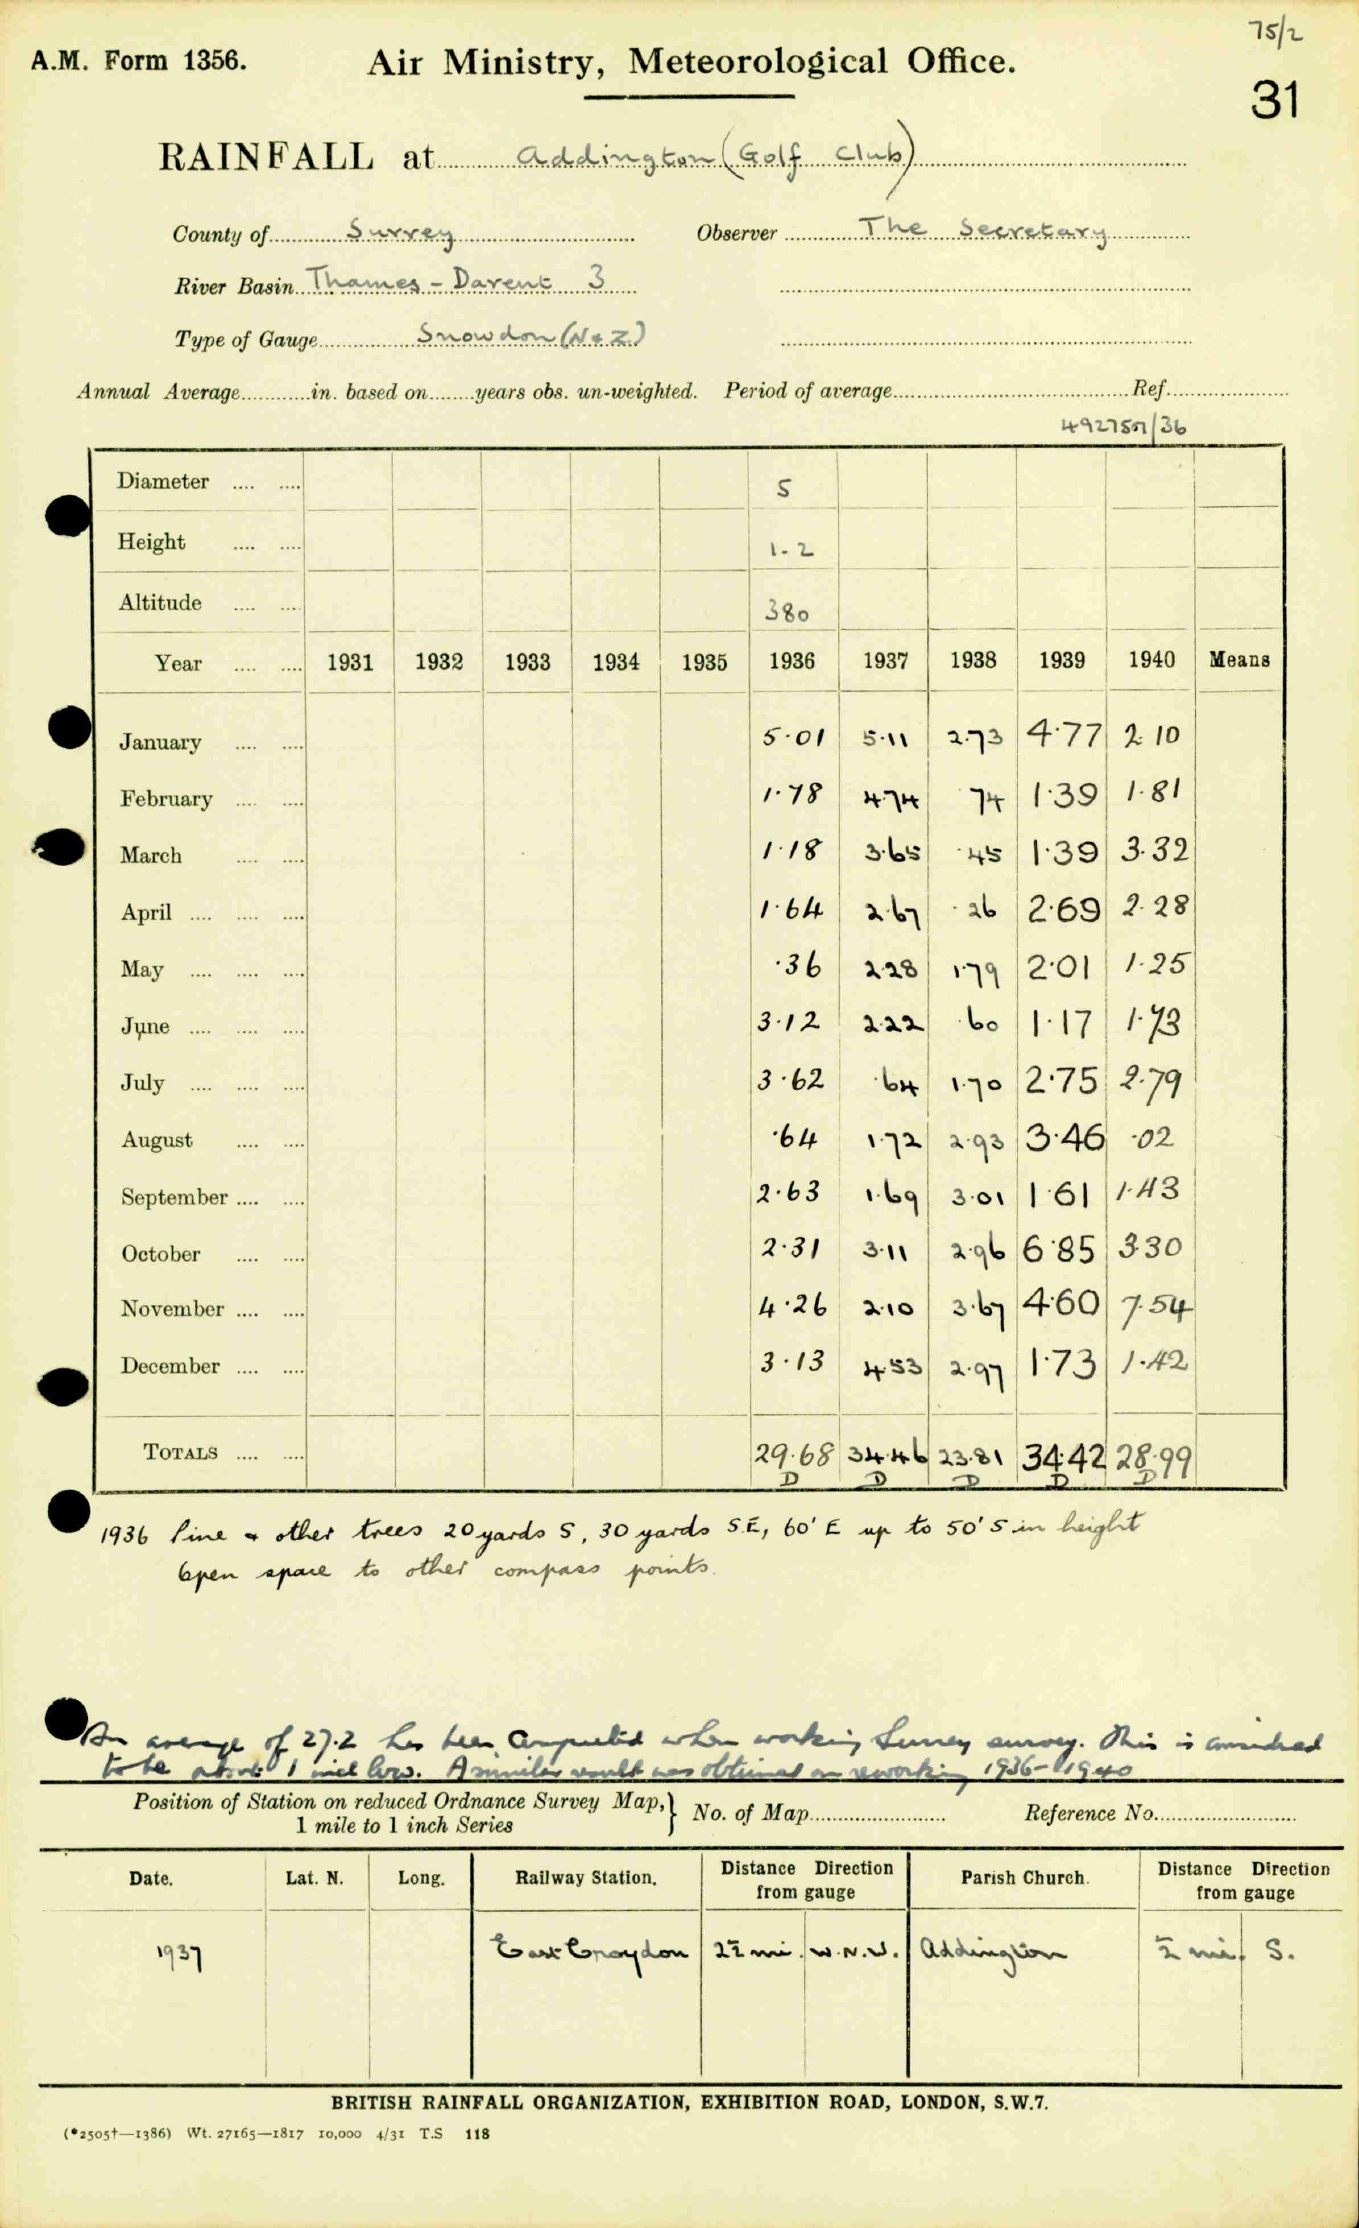 75/2
A.M. Form 1356. Air Ministry, Meteorological Office.
31
RAINFALL at Addington (Golf Club)
County of Surrey Observer The Secretary
River Basin Thames - Darent 3
Type of Gauge Snowdon (N & Z)
Annual Average in. based on years obs. un-weighted. Period of average Ref.
/36
Diameter 5
Height 1-2
Altitude 380
Year 1931 1932 1933 1934 1935 1936 1937 1938 1939 1940 Means
January 5·01 5·11 2·73 4·77 2·10
February 1·78 4·74 ·74 1·39 1·81
March 1·18 3·65 ·45 1·39 3·32
April 1·64 2·67 ·26 2·69 2·28
May ·36 2·28 1·79 2·01 1·25
June 3·12 2·22 ·60 1·17 1·73
July 3·62 ·64 1·70 2·75 2·79
August ·64 1·72 2·93 3·46 ·02
September 2·63 1·69 3·01 1·61 1·43
October 2·31 3·11 2·96 6·85 3·30
November 4·26 2·10 3·67 4·60 7·54
December 3·13 4·53 2·97 1·73 1·42
TOTALS 29·68 34·46 23·81 34·42 28·99
D D D D D
1936 Pine & other trees 20 yards S, 30 yards S.E, 60' E up to 50' S in height
Open space to other compass points.
An average of 27.2 has been computed when working Surrey survey. This is considered
to be about 1 inch low. A similar result was obtained on reworking 1936-1940
Position of Station on reduced Ordnance Survey Map, } No. of Map Reference No.
1 mile to 1 inch Series
Date. Lat. N. Long. Railway Station. Distance Direction from gauge Parish Church. Distance Direction from gauge
1937 East Croydon 2½ mi. W.N.W. Addington ½ mi. S.
BRITISH RAINFALL ORGANIZATION, EXHIBITION ROAD, LONDON, S.W.7.
(*2505†—1386) Wt. 27165—1817 10,000 4/31 T.S 118